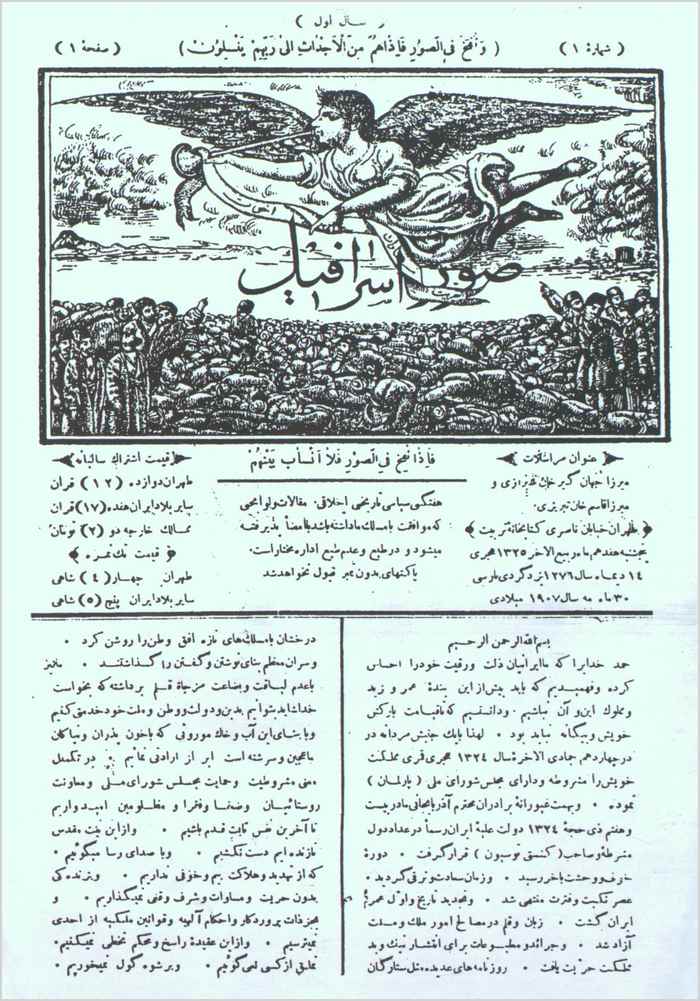 سال اول )
( شماره ۱ )
( وَ نُفِخَ فِی الصّورِ فَاِذاهُم مِنَ الْاَجْداثِ اِلیٰ رَبِّهِمْ یَنْسِلُونَ )
( صفحهٔ ۱ )
صور اسرافیل
عنوان مراسلات
میرزا جهان گیر خان شیرازی و
میرزا قاسم خان تبریزی
طهران خیابان ناصری کتابخانهٔ تربیت
پنجشنبه هفدهم ماه ربیع الاخر ۱۳۲۵ هجری
۱۴ دیماه سال ۱۲۷۶ یزد گردی پارسی
۳۰ ماه مه سال ۱۹۰۷ میلادی
فَاِذا نُفِخَ فِی الصّورِ فَلا اَنْسابَ بَیْنَهُمْ
هفتگی سیاسی تاریخی اخلاقی . مقالات ولوایحی
که موافقت با مسلک ما داشته باشد با امضا پذیرفته
میشود و در طبع و عدم طبع اداره مختار است .
پاکتهای بدون تمبر قبول نخواهد شد
قیمت اشتراک سالیانه
طهران دوازده ( ۱۲ ) قران
سایر بلاد ایران هفده (۱۷) قران
ممالک خارجه دو (۲) تومان
قیمت تک نمره
طهران چهار (۴) شاهی
سایر بلاد ایران پنج (۵) شاهی
بسم الله الرحمن الرحیم
حمد خدایرا که ما ایرانیان ذلت و رقیت خود را احساس
کرده و فهمیدیم که باید بیش از این بندهٔ عمر و زید
و مملوک این و آن نباشیم . و دانستیم که تا قیامت بارکش
خویش و بیگانه نباید بود . لهذا با یک جنبش مردانه در
چهاردهم جمادی الاخرهٔ سال ۱۳۲۴ هجری قمری مملکت
خویش را مشروطه و دارای مجلس شورای ملی ( پارلمان )
نموده . و بهمت غیورانهٔ برادران محترم آذربایجانی ما در بیست
و هفتم ذی حجهٔ ۱۳۲۴ دولت علیهٔ ایران رسماً در عداد دول
مشروطه و صاحب ( کنستی توسیون ) قرار گرفت . دورهٔ
خوف و وحشت باخر رسید . و زمان سعادت و ترقی گردید .
عصر نکبت و فترت منتهی شد . و تجدید تاریخ و اول عمر
ایران گشت . زبان و قلم در مصالح امور ملک و ملت
آزاد شد . و جرائد و مطبوعات برای انتشار نیک و بد
مملکت حریت یافت . روزنامه های عدیده مثل ستارگان
درخشان با مسلک های تازه افق وطن را روشن کرد .
و سران معظم بنای نوشتن و گفتن را گذاشتند . مانیز
با عدم لیاقت و بضاعت مزجاة قلم برداشته که بخواست
خدا شاید بتوانیم بدین و دولت و وطن و ملت خود خدمتی کنیم
و باستانی این آب و خاک موروثی که با خون پدران و نیاکان
ما عجین و سرشته است ابراز ارادتی نمائیم در تکمیل
معنی مشروطیت و حمایت مجلس شورای ملی و معاونت
روستائیان وضعفا و فقرا و مظلومین امیدواریم
تا آخرین نفس ثابت قدم باشیم . و از این نیت مقدس
تازنده ایم دست نکشیم . و با صدای رسا میگوئیم .
که از تهدید و هلاکت بیم و خوفی نداریم . و بزندگی
بدون حریت و مساوات و شرف وقعی نمیگذاریم . و
بجز ذات پروردگار و احکام آلهیه و قوانین ملکیه از احدی
نمیترسیم . و از این عقیدهٔ راسخ و محکم تخطی نمیکنیم .
تملق از کسی نمیگوئیم . و برشوه گول نمیخوریم .